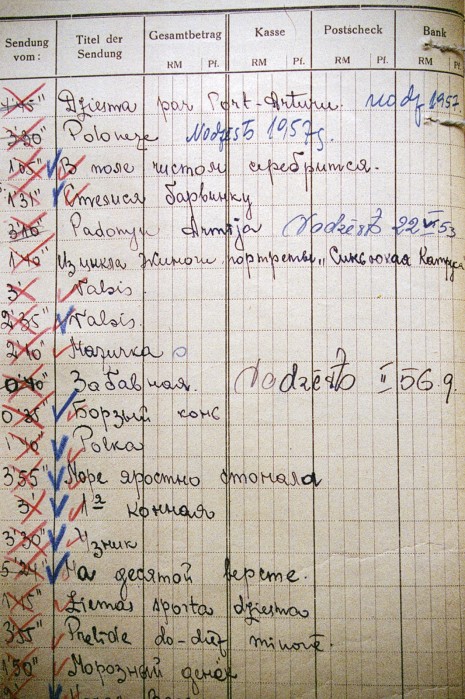 Sendung vom: Titel der Sendung Gesamtbetrag Kasse Postscheck Bank
RM Pf. RM Pf. RM Pf. RM Pf.
Dziesma par Port-Arturu. 1957.
3'30" Poloneze Nodzēsts 1957g.
1'05" В поле чистом серебрится.
1'31" Стелися барвинку
3'10" Padomju Armija Nodzēsts 22 VI 53
1'40" Из цикла Жіночі портреты „Синьоокая Катруся"
3' Valsis.
2'35" Valsis.
2'10" Мазурка
0'40" Забавная. Nodzēsts II 56.g.
0'35" Борзый конь
1'40" Polka
3'55" Море яростно стонало
3' 1ª конная
3'30" Узник
5'24" На десятой версте.
1'15" Ziemas sporta dziesma
3'55" Prelīde do-diēz minorē.
1'50" Морозный денёк